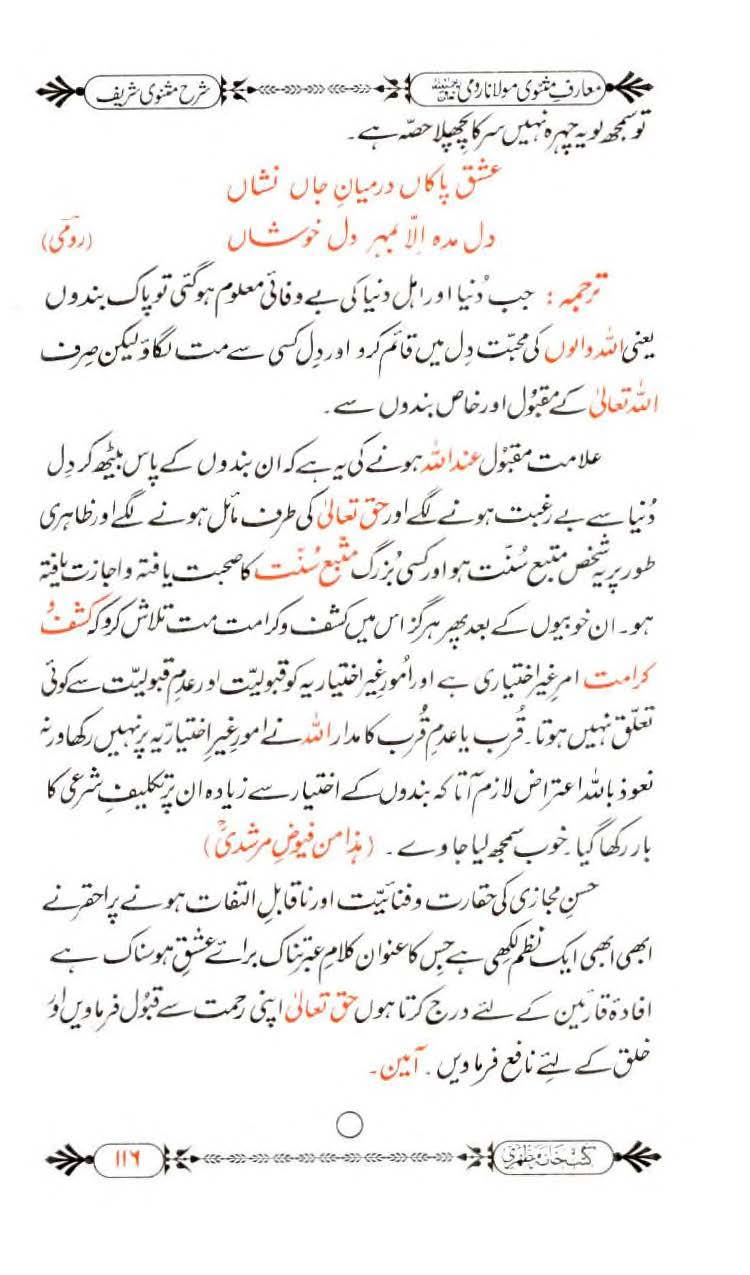 معارفِ مثنوی مولانا رومی رحمۃ اللہ علیہ
شرح مثنوی شریف
تو سمجھ لو یہ چہرہ نہیں سر کا پچھلا حصّہ ہے۔
عشق پاکاں درمیانِ جاں نشاں
دل مدہ اِلّا بمہرِ دل خوشاں (رومیؒ)
ترجمہ: جب دُنیا اور اہل دنیا کی بے وفائی معلوم ہوگئی تو پاک بندوں
یعنی اللہ والوں کی محبّت دِل میں قائم کرو اور دِل کسی سے مت لگاؤ لیکن صِرف
اللہ تعالیٰ کے مقبُول اور خاص بندوں سے۔
علامت مقبُول عند اللہ ہونے کی یہ ہے کہ ان بندوں کے پاس بیٹھ کر دِل
دُنیا سے بے رغبت ہونے لگے اور حق تعالیٰ کی طرف مائل ہونے لگے اور ظاہری
طور پر یہ شخص متبع سُنّت ہو اور کسی بُزرگ متبع سُنّت کا صحبت یافتہ و اجازت یافتہ
ہو۔ ان خوبیوں کے بعد پھر ہرگز اس میں کشف و کرامت مت تلاش کرو کہ کشف و
کرامت امر غیر اختیاری ہے اور اُمورِ غیر اختیاریہ کو قبولیّت اور عدمِ قبولیّت سے کوئی
تعلّق نہیں ہوتا۔ قُرب یا عدمِ قُرب کا مدار اللہ نے امورِ غیرِ اختیاریّہ پر نہیں رکھا ورنہ
نعوذ باللہ اعتراض لازم آتا کہ بندوں کے اختیار سے زیادہ ان پر تکلیفِ شرعی کا
بار رکھا گیا۔ خوب سمجھ لیا جاوے۔ (ہذا من فیوضِ مرشدیؒ)
حسنِ مجازی کی حقارت و فنائیّت اور ناقابلِ التفات ہونے پر احقر نے
ابھی ابھی ایک نظم لکھی ہے جس کا عنوان کلامِ عبرتناک برائے عشقِ ہوسناک ہے
افادۂ قارئین کے لئے درج کرتا ہوں حق تعالیٰ اپنی رحمت سے قبُول فرماویں اور
خلق کے لِئے نافع فرماویں۔ آمین۔
کتب خانہ مظہری
۱۱۶